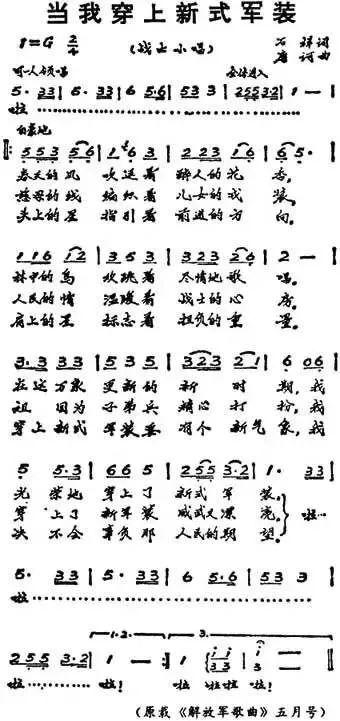 当我穿上新式军装
1=G 2/4
(战士小唱)
石祥词
唐诃曲
全体进入
5· 33 | 5· 33 | 6 5·6 | 53 3 | 2553·2 | 1 — |
啦
自豪地
553 56 | 1 6 3 | 223 16 | 6 5· |
春天的风 吹送着 醉人的花 香。
慈母的线 编织着 儿女的戎 装。
头上的星 指引着 前进的方 向。
116 12 | 3 5 3 | 323 26 | 2 — |
林中的鸟 欢跳着 尽情地歌 唱。
人民的情 温暖着 战士的心 房。
肩上的星 标志着 担负的重 量。
3·3 33 | 5 3 5 | 323 21 | 6 06 |
在这万象 更新的 新 时 期,我
祖 国为 子弟兵 精心打 扮,我
穿上新式 军装要 有个新气 象,我
5 5·3 | 66 5 | 255 3·2 | 1· 33 |
光 荣地 穿上了 新式军 装。
穿 上了 新军装 威武又漂 亮。 啦…
决 不会 辜负那 人民的期 望。
5· 33 | 5· 33 | 6 5·6 | 53 3 |
啦
1.2. 3.
255 3·2 | 1 — :| 1 i i | i
啦 啦! 啦 啦啦 啦!
(原载《解放军歌曲》五月号)